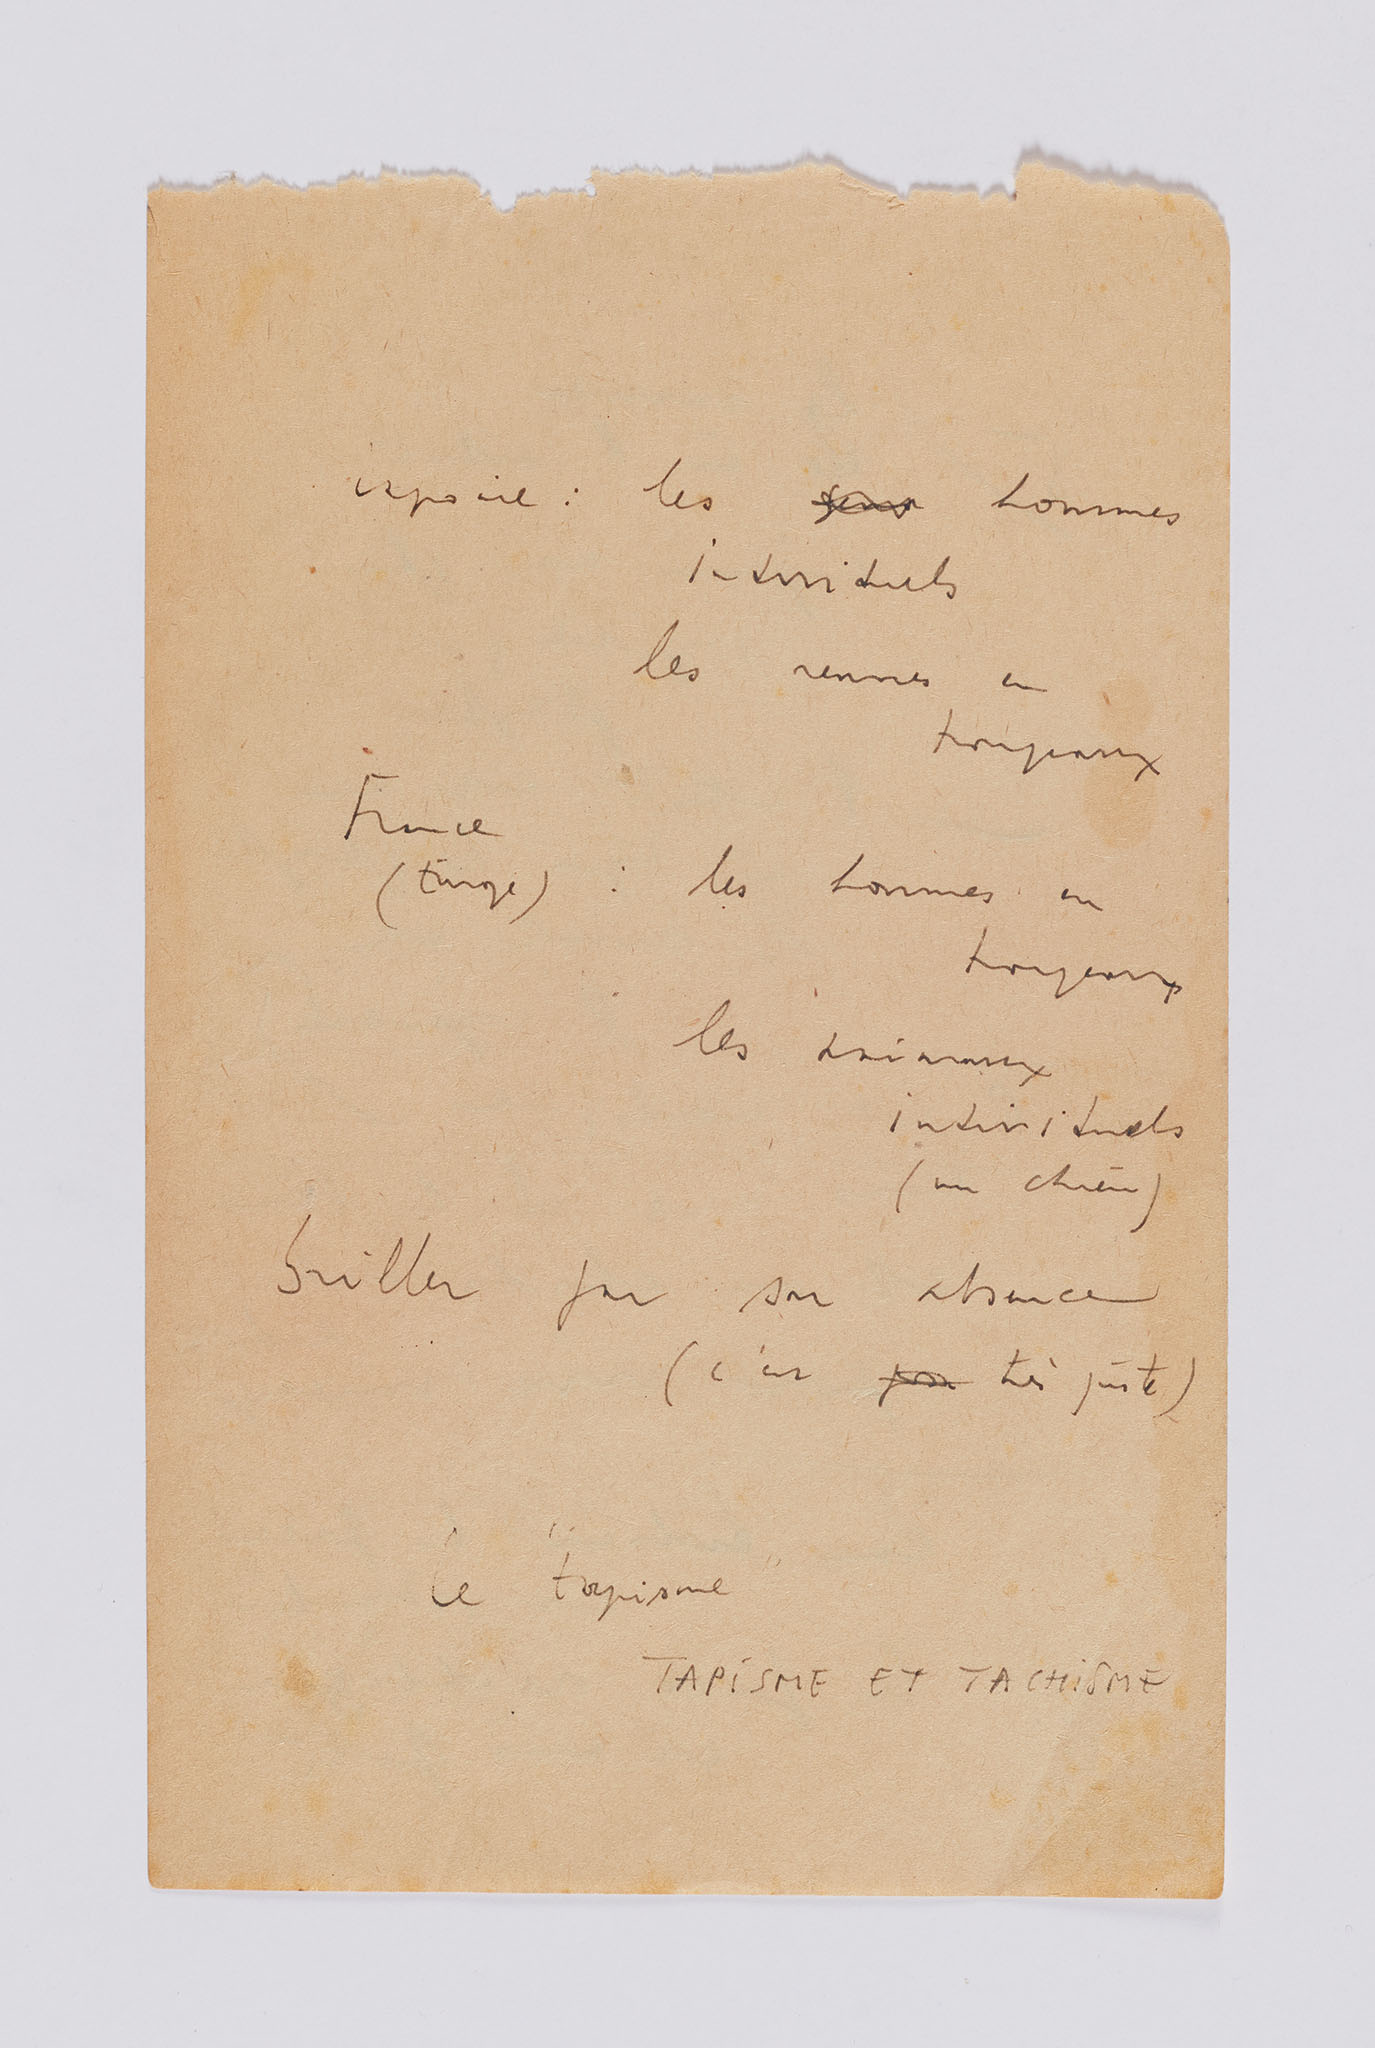 Laponie : les gens hommes
individuels
les rennes en
troupeaux
France
(Europe) : les hommes en
troupeaux
les animaux
individuels
(un chien)
briller par son absence
(c'est très juste)
Le "tapisme"
TAPISME ET TACHISME